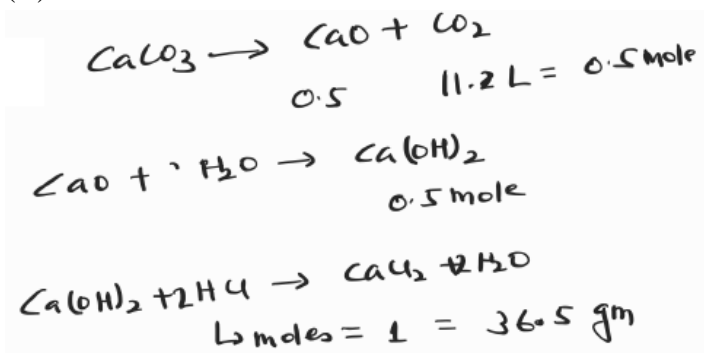 CaCO3 → CaO + CO2
0.5 11.2 L = 0.5 mole
CaO + H2O → Ca(OH)2
0.5 mole
Ca(OH)2 + 2HCl → CaCl2 + 2H2O
↳ moles = 1 = 36.5 gm